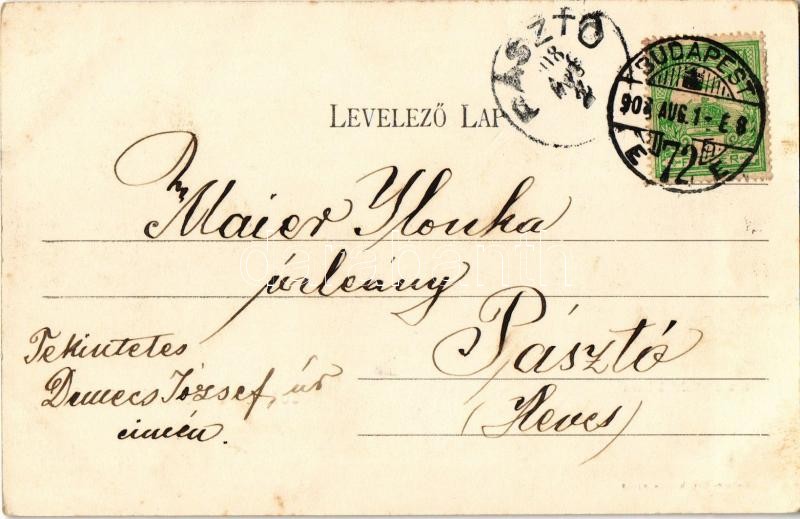 PÁSZTÓ
BUDAPEST
LEVELEZŐ LAP
AUG. 1
72
Maier Ilonka
úrleány
Pásztó
(Heves)
Tekintetes
József úr
címén.